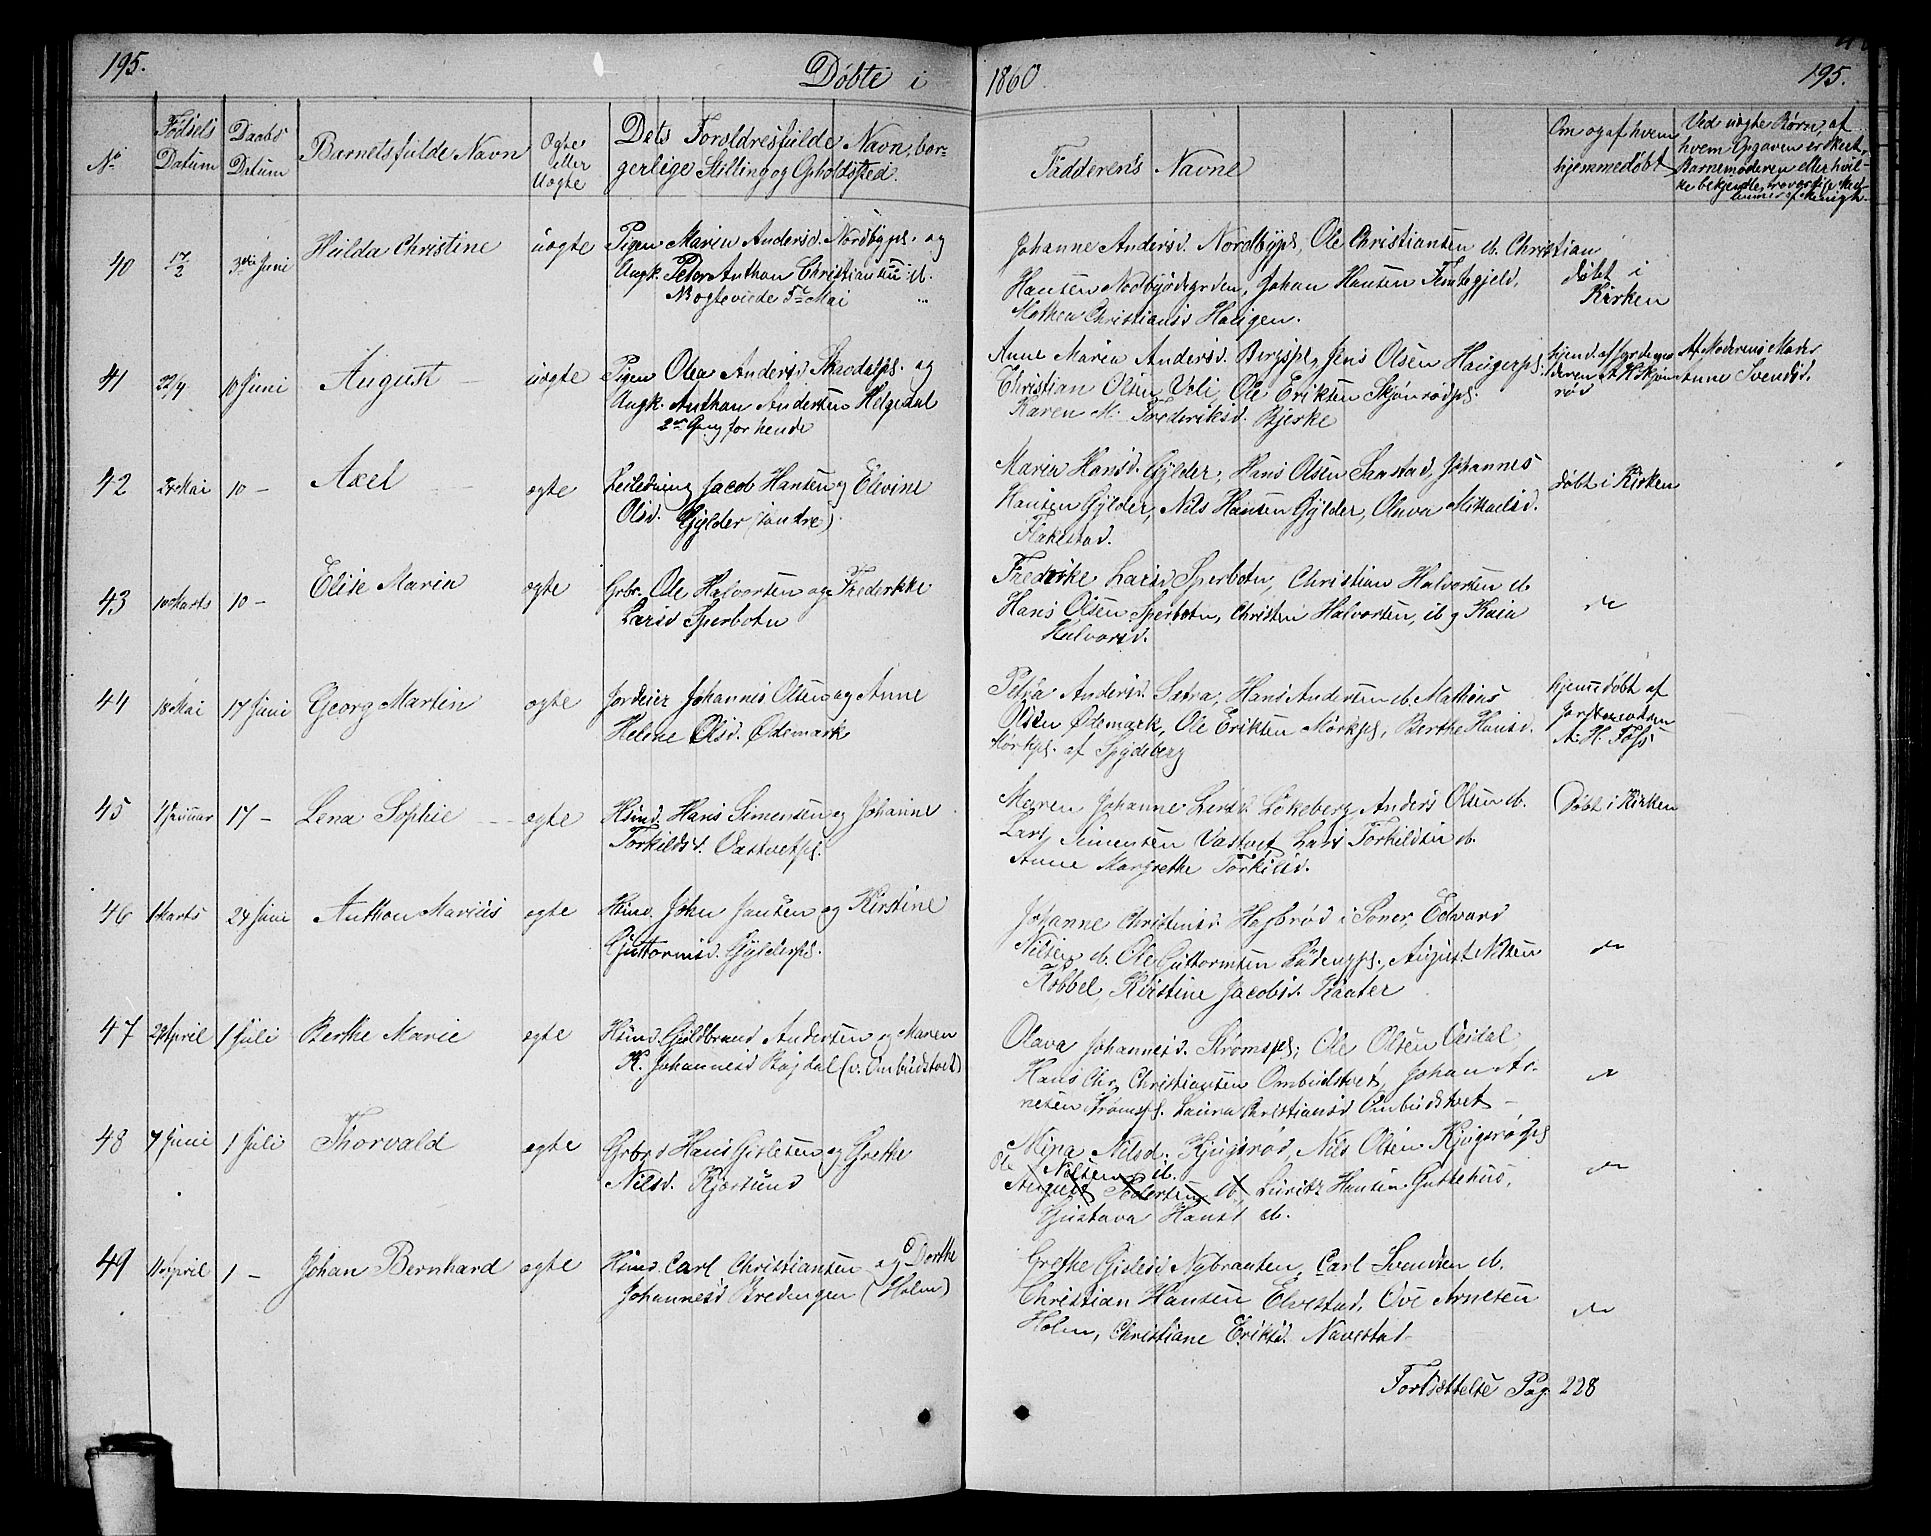 195.
Döbte i
1860
195.
No
Födsels
Datum
Daabs
Datum
Barnets fulde Navn
Ægte
eller
Uægte
Dets Foræld­res fulde Navn, bor-
gerlige Stilling og Opholdssted.
Fadderens Navne
Om og af hvem
hjemmedöbt
Ved uægte Börn, af
hvem Opgaven er skeet,
Barnemoderen eller hvil-
40 17/2 3die Juni Hulda Christine uægte Pigen Maren Andersd. Nordbypl. og
Ungk. Peder Anthon Christiansen ib.
NB ægteviede 5te Mai
Johanne Andersd. Nordbypl, Ole Christiansen ib. Christian
Hansen Nordbyödegrden, Johan Hansen
Mathea Christiansd Haugen.
döbt i
Kirken
41 22/4 10 Juni August uægte Pigen Olea Andersd. og
Ungk. Anthon Andersen Helgedal
2den Gang for hende
Anne Maria Andersd. Bergspl, Jens Olsen Haugerpl.
Christian Olsen Ucli, Ole Eriksen Skjönrödpl.
Karen M. Frederiksd. Bjerke
Af Moderens Moder
Anne Svendsd.
42 Mai 10 - Axel ægte Leilending Jacob Hansen og Elevine
Olsd. Gylder (söndre)
Maria Hansd. Gylder, Hans Olsen Saastad, Johannes
Hansen Gylder, Nils Hansen Gylder, Olava Mikaelsd.
Flakestad.
döbt i Kirken
43 10 Marts 10 - Elise Marin ægte Grbr. Ole Halvorsen og Frederikke
Larsd Sperbotn
Fredrike Larsd Sperbotn, Christian Halvorsen ib
Hans Olsen Sperbotn, Christen Halvorsen, ib og Kaia
Halvorsd.
do
44 18 Mai 17 Juni Georg Martin ægte Jordeier Johannes Olsen og Anne
Helene Olsd. Ödemark
Petra Andersd. Sætra, Hans Andersen ib. Mathias
Olsen Ödemark, Ole Eriksen Mörkpl, Berthe Hansd.
Mörkpl. af Spydeberg
hjemmedöbt af
Jordemoderen
A. H. Foss
45 4 Januar 17 - Lena Sophie ægte Hsmd. Hans Simensen og Johanne
Torkildsd. Vastvetpl.
Maren Johanne Larsd. Lökeberg Anders Olsen ib.
Lars Simensen Vastvet Lars Torkildsen ib.
Anne Margrethe Torkilsd.
Döbt i Kirken
46 1 Marts 24 Juni Anthon Marius ægte Hsmd. John Jansen og Kirstine
Guttormsd. Gylderpl.
Johanne Christensd. i Soner, Edvard
Nilsen ib. Ole Guttormsen August Nilsen
Kobbel, Kirstine Jacobsd.
do
47 29 April 1 Juli Berthe Marie ægte Hsmd. Guldbrand Andersen og Maren
K. Johannesd Bagdal (v. Ombudstvet)
Olava Johannesd. Strömspl; Ole Olsen
Hans Chr. Christiansen Ombudstvet, Johan Ar-
nesen Strömspl. Laura Christiansd Ombudstvet -
do
48 7 Juni 1 Juli Thorvald ægte Grbr. Hans Gislesen og Grethe
Nilsd. Kjörsund
Mina Nilsd. Kjugsröd, Nils Olsen Kjugsrödpl
Ole Nilsen ib.
August Pedersen ib, Lurits Hansen Guttehus,
Gustava Hansd ib.
do
49 11 April 1 - Johan Bernhard ægte Hsmd. Carl Christiansen og Dorthe
Johannesd Bredengen (Holm)
Grethe Gislesd Nybraaten, Carl Svendsen ib.
Christian Hansen Elvestad, Ove Arnesen
Holm, Christiane Eriksd. Navestad
do
Fortsættelse Pag. 228